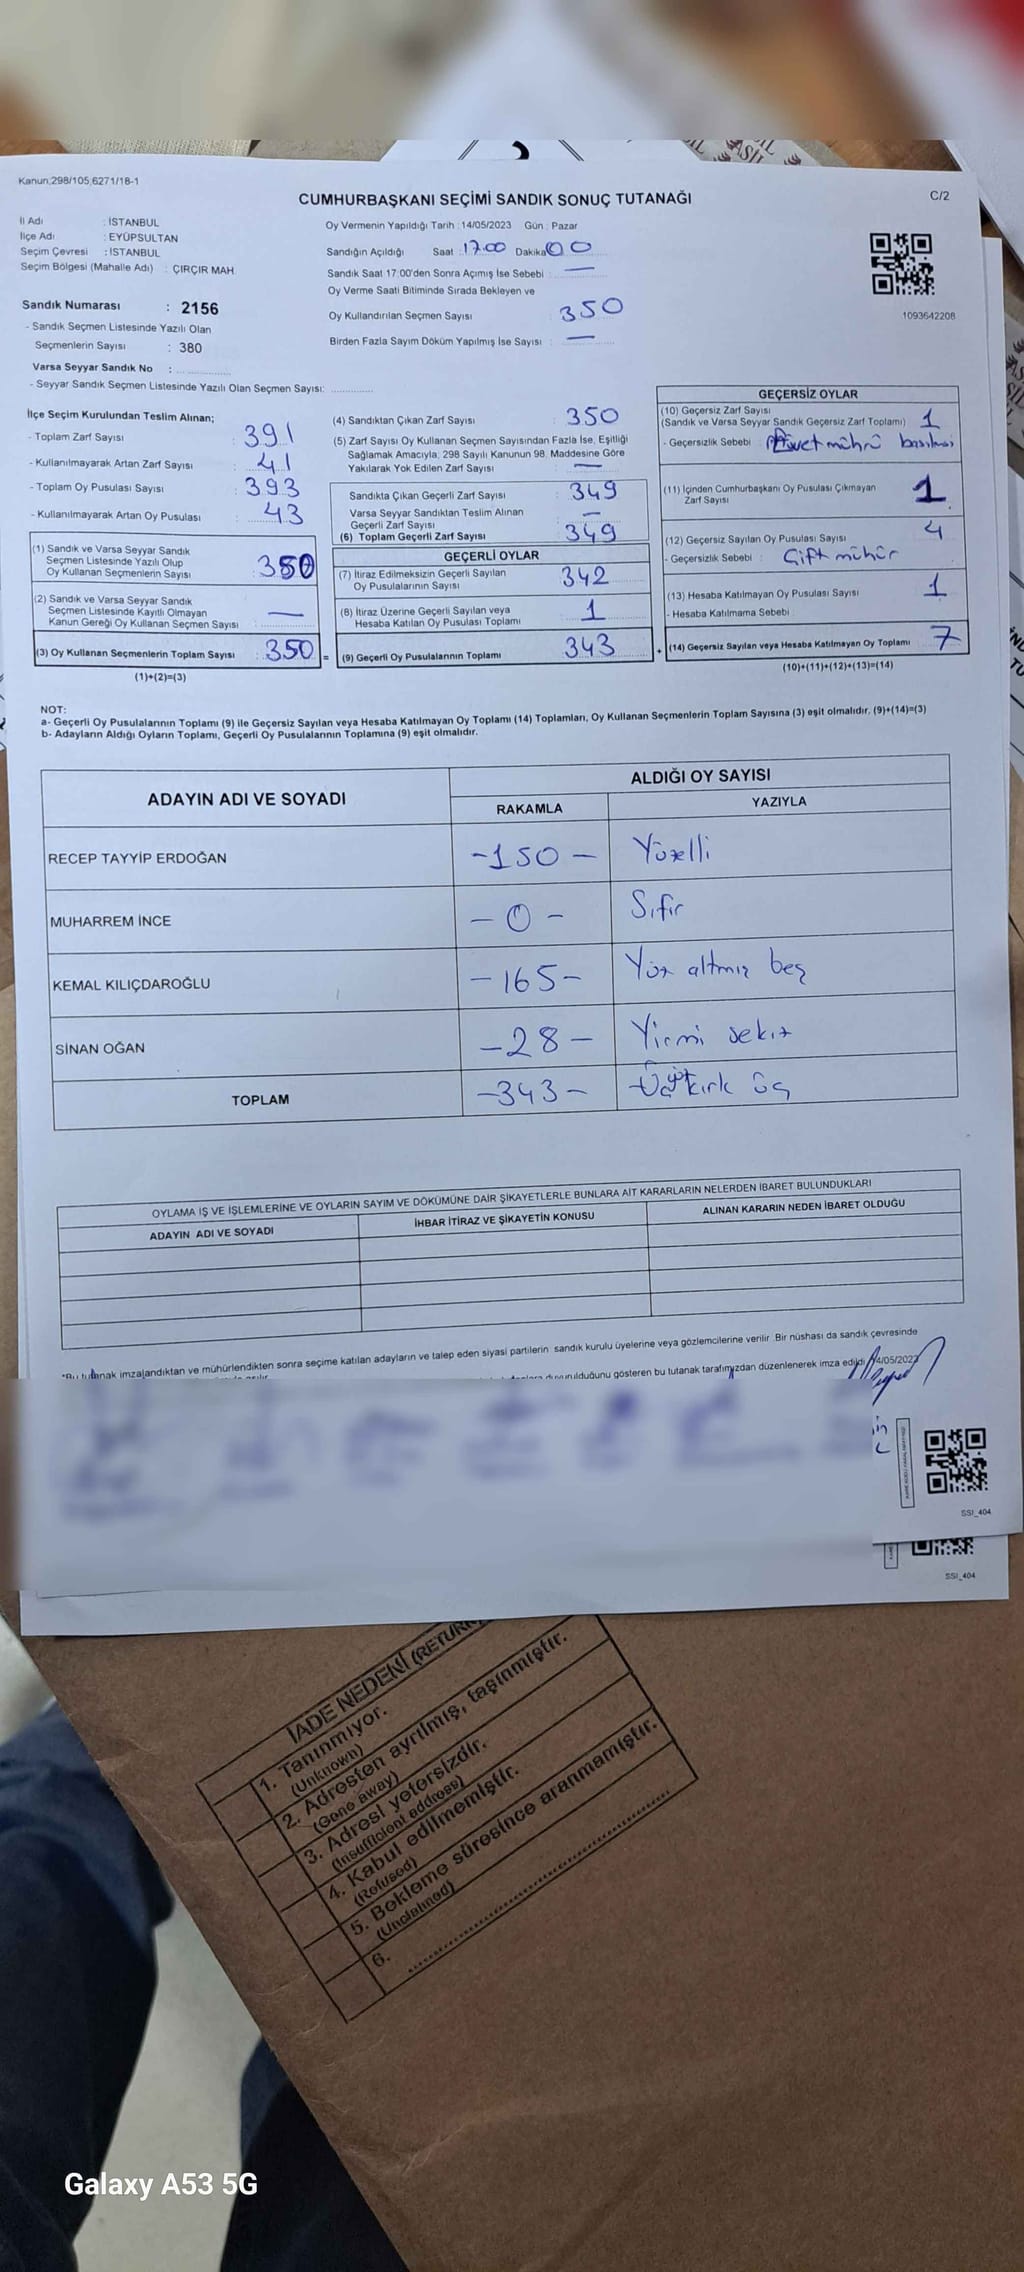 Kanun;298/105,6271/18-1
CUMHURBAŞKANI SEÇİMİ SANDIK SONUÇ TUTANAĞI
C/2
İl Adı : İSTANBUL
İlçe Adı : EYÜPSULTAN
Seçim Çevresi : İSTANBUL
Seçim Bölgesi (Mahalle Adı) : ÇIRÇIR MAH.
Oy Vermenin Yapıldığı Tarih : 14/05/2023 Gün : Pazar
Sandığın Açıldığı Saat : 17.00 Dakika 00
Sandık Saat 17.00'den Sonra Açımış İse Sebebi : —
Oy Verme Saati Bitiminde Sırada Bekleyen ve
Oy Kullandırılan Seçmen Sayısı : 350
Birden Fazla Sayım Döküm Yapılmış İse Sayısı : —
1093642208
Sandık Numarası : 2156
- Sandık Seçmen Listesinde Yazılı Olan
Seçmenlerin Sayısı : 380
Varsa Seyyar Sandık No : ..............
- Seyyar Sandık Seçmen Listesinde Yazılı Olan Seçmen Sayısı: ..............
İlçe Seçim Kurulundan Teslim Alınan;
- Toplam Zarf Sayısı : 391
- Kullanılmayarak Artan Zarf Sayısı : 41
- Toplam Oy Pusulası Sayısı : 393
- Kullanılmayarak Artan Oy Pusulası : 43
(1) Sandık ve Varsa Seyyar Sandık
Seçmen Listesinde Yazılı Olup
Oy Kullanan Seçmenlerin Sayısı : 350
(2) Sandık ve Varsa Seyyar Sandık
Seçmen Listesinde Kayıtlı Olmayan
Kanun Gereği Oy Kullanan Seçmen Sayısı : —
(3) Oy Kullanan Seçmenlerin Toplam Sayısı : 350 =
(1)+(2)=(3)
(4) Sandıktan Çıkan Zarf Sayısı : 350
(5) Zarf Sayısı Oy Kullanan Seçmen Sayısından Fazla İse, Eşitliği
Sağlamak Amacıyla; 298 Sayılı Kanunun 98. Maddesine Göre
Yakılarak Yok Edilen Zarf Sayısı : —
Sandıkta Çıkan Geçerli Zarf Sayısı : 349
Varsa Seyyar Sandıktan Teslim Alınan
Geçerli Zarf Sayısı : —
(6) Toplam Geçerli Zarf Sayısı : 349
GEÇERLİ OYLAR
(7) İtiraz Edilmeksizin Geçerli Sayılan
Oy Pusulalarının Sayısı : 342
(8) İtiraz Üzerine Geçerli Sayılan veya
Hesaba Katılan Oy Pusulası Toplamı : 1
(9) Geçerli Oy Pusulalarının Toplamı : 343 +
GEÇERSİZ OYLAR
(10) Geçersiz Zarf Sayısı
(Sandık ve Varsa Seyyar Sandık Geçersiz Zarf Toplamı) : 1
- Geçersizlik Sebebi : Evet mührü basılması
(11) İçinden Cumhurbaşkanı Oy Pusulası Çıkmayan
Zarf Sayısı : 1
(12) Geçersiz Sayılan Oy Pusulası Sayısı : 4
- Geçersizlik Sebebi : Çift mühür
(13) Hesaba Katılmayan Oy Pusulası Sayısı : 1
- Hesaba Katılmama Sebebi :
(14) Geçersiz Sayılan veya Hesaba Katılmayan Oy Toplamı : 7
(10)+(11)+(12)+(13)=(14)
NOT:
a- Geçerli Oy Pusulalarının Toplamı (9) ile Geçersiz Sayılan veya Hesaba Katılmayan Oy Toplamı (14) Toplamları, Oy Kullanan Seçmenlerin Toplam Sayısına (3) eşit olmalıdır. (9)+(14)=(3)
b- Adayların Aldığı Oyların Toplamı, Geçerli Oy Pusulalarının Toplamına (9) eşit olmalıdır.
ADAYIN ADI VE SOYADI
ALDIĞI OY SAYISI
RAKAMLA YAZIYLA
RECEP TAYYİP ERDOĞAN -150- Yüzelli
MUHARREM İNCE -0- Sıfır
KEMAL KILIÇDAROĞLU -165- Yüz altmış beş
SİNAN OĞAN -28- Yirmi sekiz
TOPLAM -343- Üçyüzkırk üç
OYLAMA İŞ VE İŞLEMLERİNE VE OYLARIN SAYIM VE DÖKÜMÜNE DAİR ŞİKAYETLERLE BUNLARA AİT KARARLARIN NELERDEN İBARET BULUNDUKLARI
ADAYIN ADI VE SOYADI İHBAR İTİRAZ VE ŞİKAYETİN KONUSU ALINAN KARARIN NEDEN İBARET OLDUĞU
*Bu tutanak imzalandıktan ve mühürlendikten sonra seçime katılan adayların ve talep eden siyasi partilerin sandık kurulu üyelerine veya gözlemcilerine verilir. Bir nüshası da sandık çevresinde
duyurulduğunu gösteren bu tutanak tarafımızdan düzenlenerek imza edildi. 14/05/2023
SSI_404
SSI_404
İADE NEDENİ (RETURN
1. Tanınmıyor.
(Unknown)
2. Adresten ayrılmış, taşınmıştır.
(Gone away)
3. Adresi yetersizdir.
(Insufficient address)
4. Kabul edilmemiştir.
(Refused)
5. Bekleme süresince aranmamıştır.
(Unclaimed)
6. ..............
Galaxy A53 5G